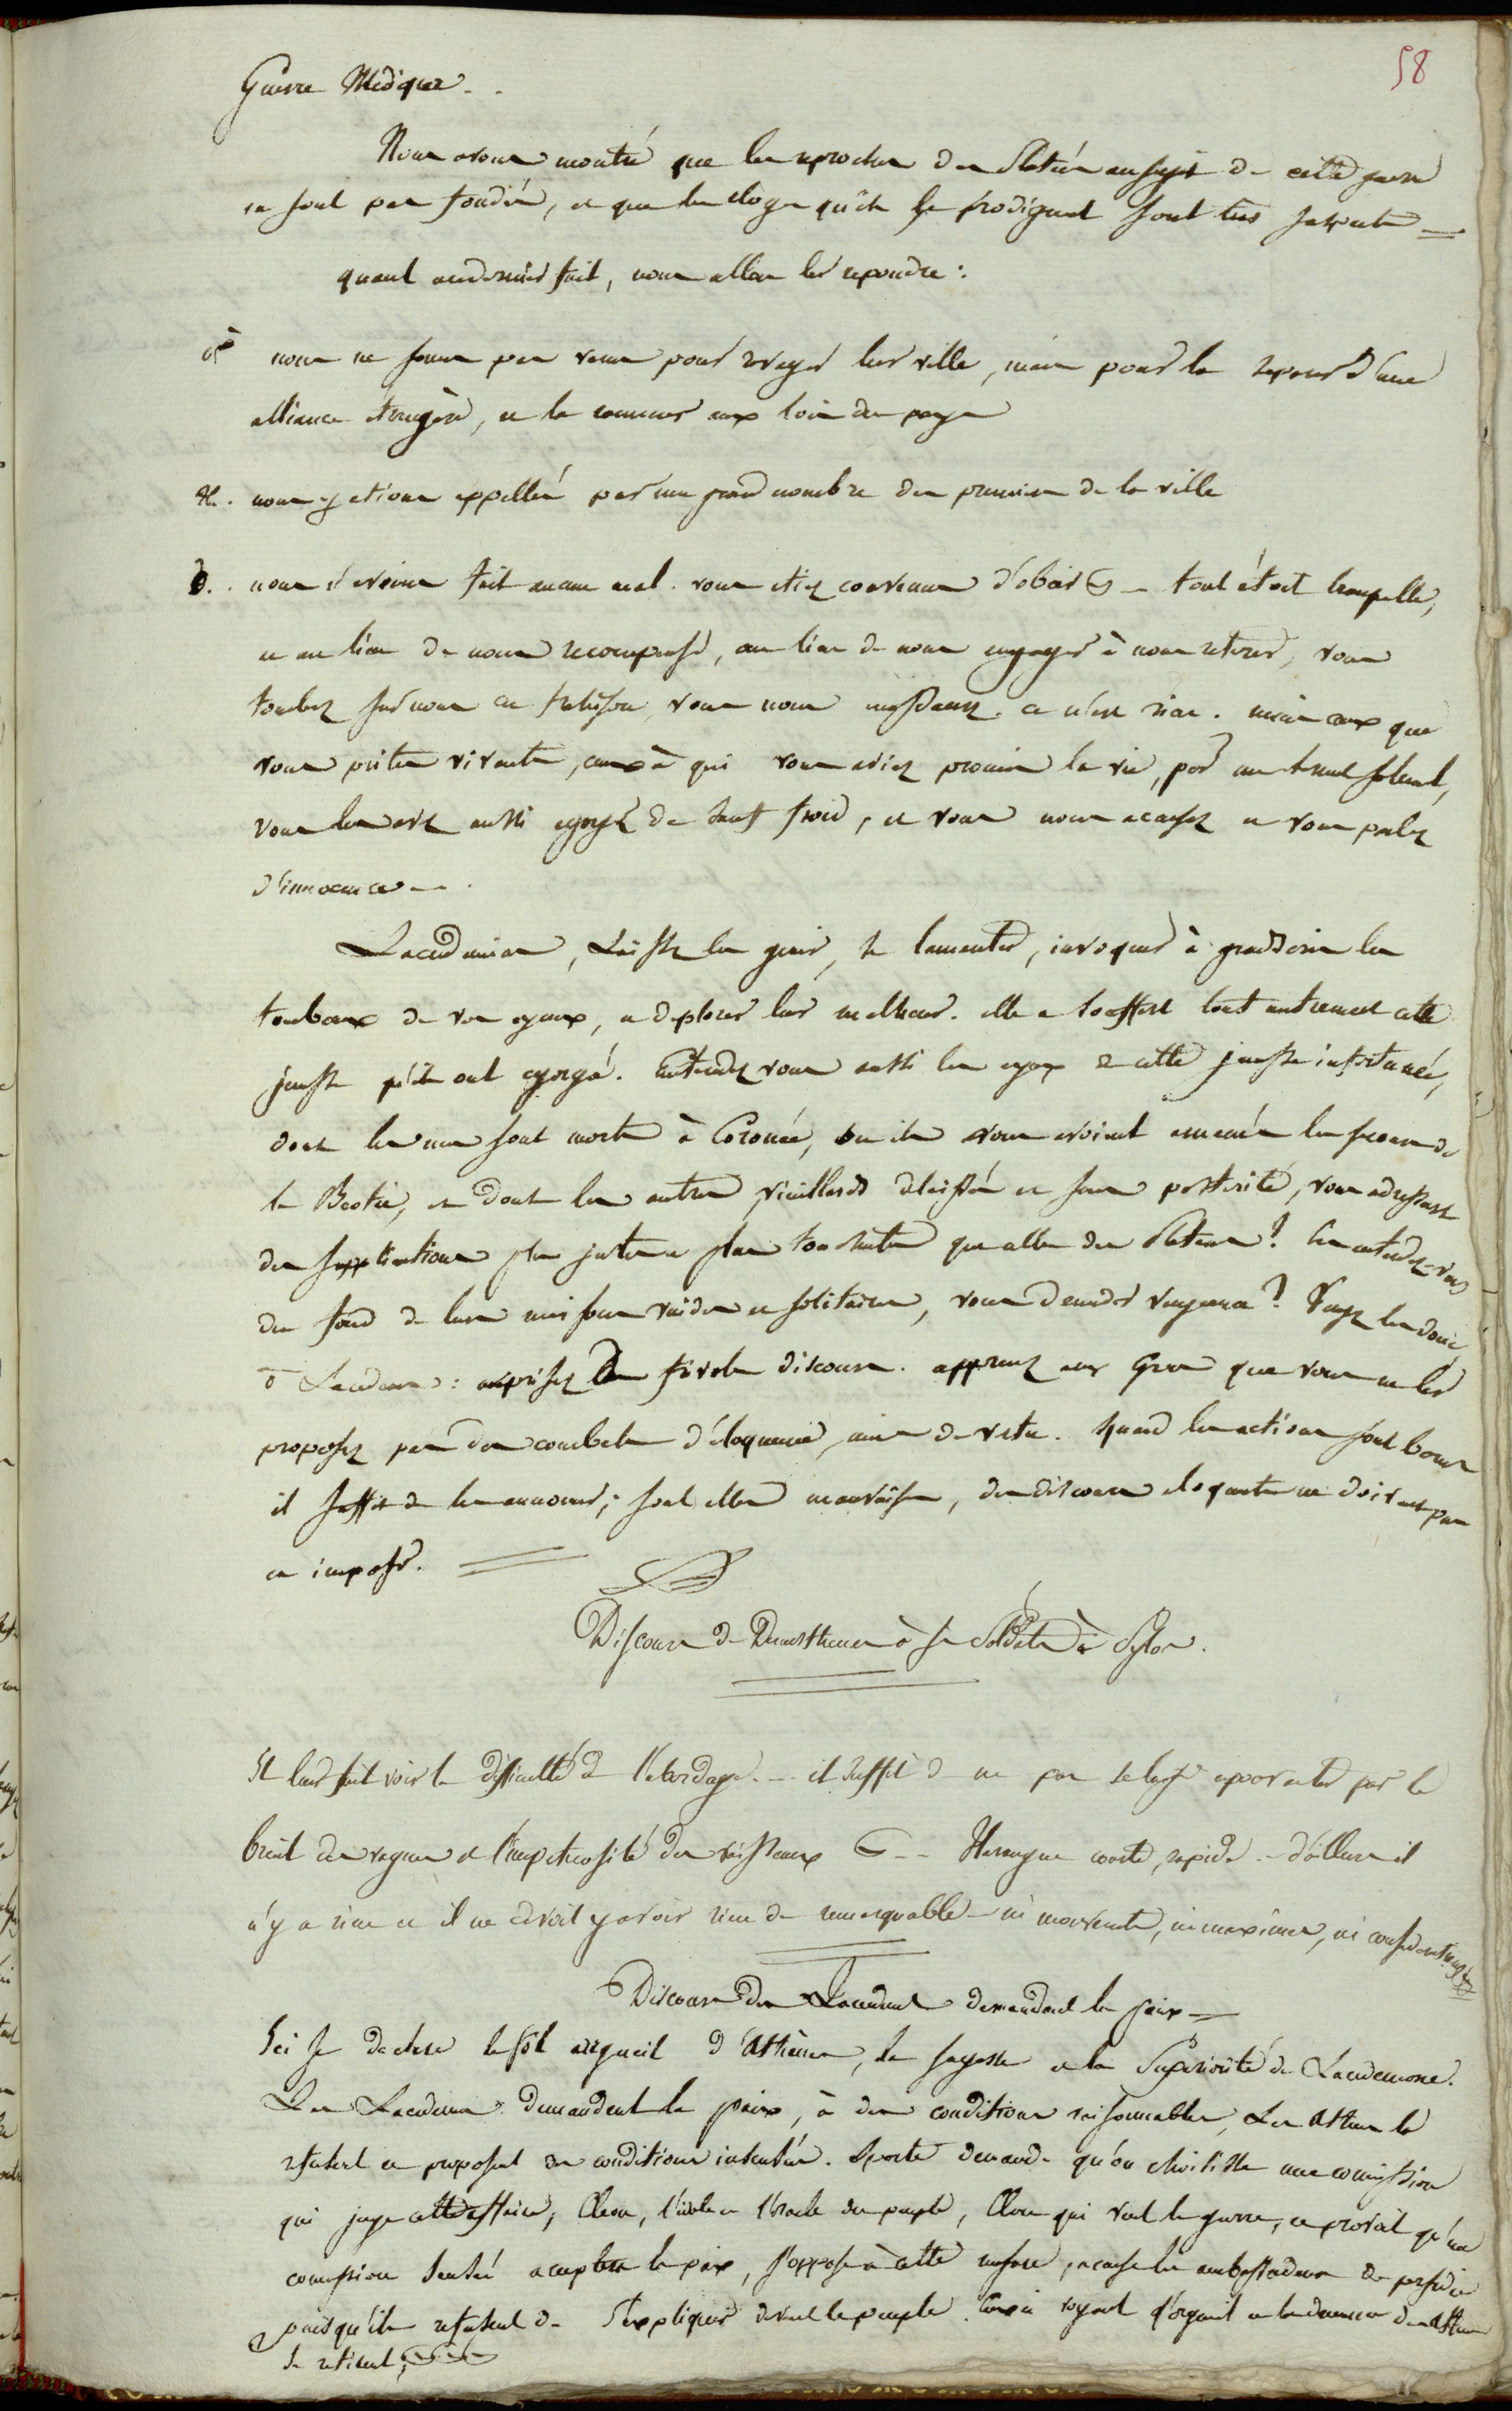 58
Guerre Médique. .
Nous avons montré que les reproches des Platéens au sujet de cette guerre
ne sont pas fondés, et que les éloges qu'ils se prodiguent sont très
quant au dernier fait, nous allons leur repondre :
nous ne sommes pas venus pour ravager leur ville, mais pour la separer d'une
alliance étrangère, et la ramener aux loix du pays
2. nous y etions appellés par un grand nombre des premiers de la ville
3. nous n'avions fait aucun mal. vous etiez convenus d'obeir — tout étoit tranquille,
et au lieu de nous recompenser, au lieu de nous engager à nous retirer, vous
tombez sur nous en trahison, vous nous ce n'est rien. mais ceux que
vous prites vivants, ceux à qui vous aviez promis la vie, par un serment solemnel,
vous les avez aussi egorgés de sang froid, et vous nous accusez et vous parlez
d'innocence — .
Lacedemoniens, laissez les gemir, se lamenter, invoquer à grands cris les
tombeaux de vos ayeux, et deplorer leur malheur. elle a souffert tout autrement cette
jeunesse qu'ils ont egorgée. Entendez vous aussi les ayeux de cette jeunesse infortunée,
dont les uns sont morts à Coronée, où ils vous avoient amenés les secours de
la Beotie, et dont les autres, vieillards delaissés et sans postérité, vous adressent
des supplications plus justes et plus touchantes que celles des Platéens ? les entendez-vous
du fond de leurs maisons vuides et solitaires, vous demander vengeance ? Vengez les donc
ô Lacedemoniens : meprisez de frivoles discours. apprenez aux Grecs que vous ne leur
proposez pas des combats d'éloquence, mais de vertu. quand les actions sont bonnes
il suffit de les annoncer ; sont elles mauvaises, des discours eloquents ne doivent pas
en imposer.
Discours de Demosthenes à ses Soldats à Pylos.
Il leur fait voir la difficulté de l'abordage. — il suffit de ne pas se laisser epouvanter par le
bruit des vagues et l'impetuosité des vaisseaux — Harangue courte, rapide. — d'ailleurs il
n'y a rien et il ne devoit y avoir rien de remarquable — ni mouvements, ni maximes, ni
Discours des Lacedem. demandant la paix —
Ici se declare le fol orgueil d'Athènes, la sagesse et la Superiorité de Lacedemone.
Les Lacedem. demandent la paix, à des conditions raisonnables, les Athen. la
refusent et proposent des conditions insensées. Sparte demande qu'on choisisse une commission
qui juge cette affaire, Cleon, l'idole et l'oracle du peuple, Cleon qui veut la guerre, et prevoit qu'une
commission sensée acceptera la paix, s'oppose à cette mesure, accuse les ambassadeurs de perfidie
puisqu'ils refusent de s'expliquer devant le peuple. Ceux ci voyant l'orgueil et la demence des Athen.
se retirent,